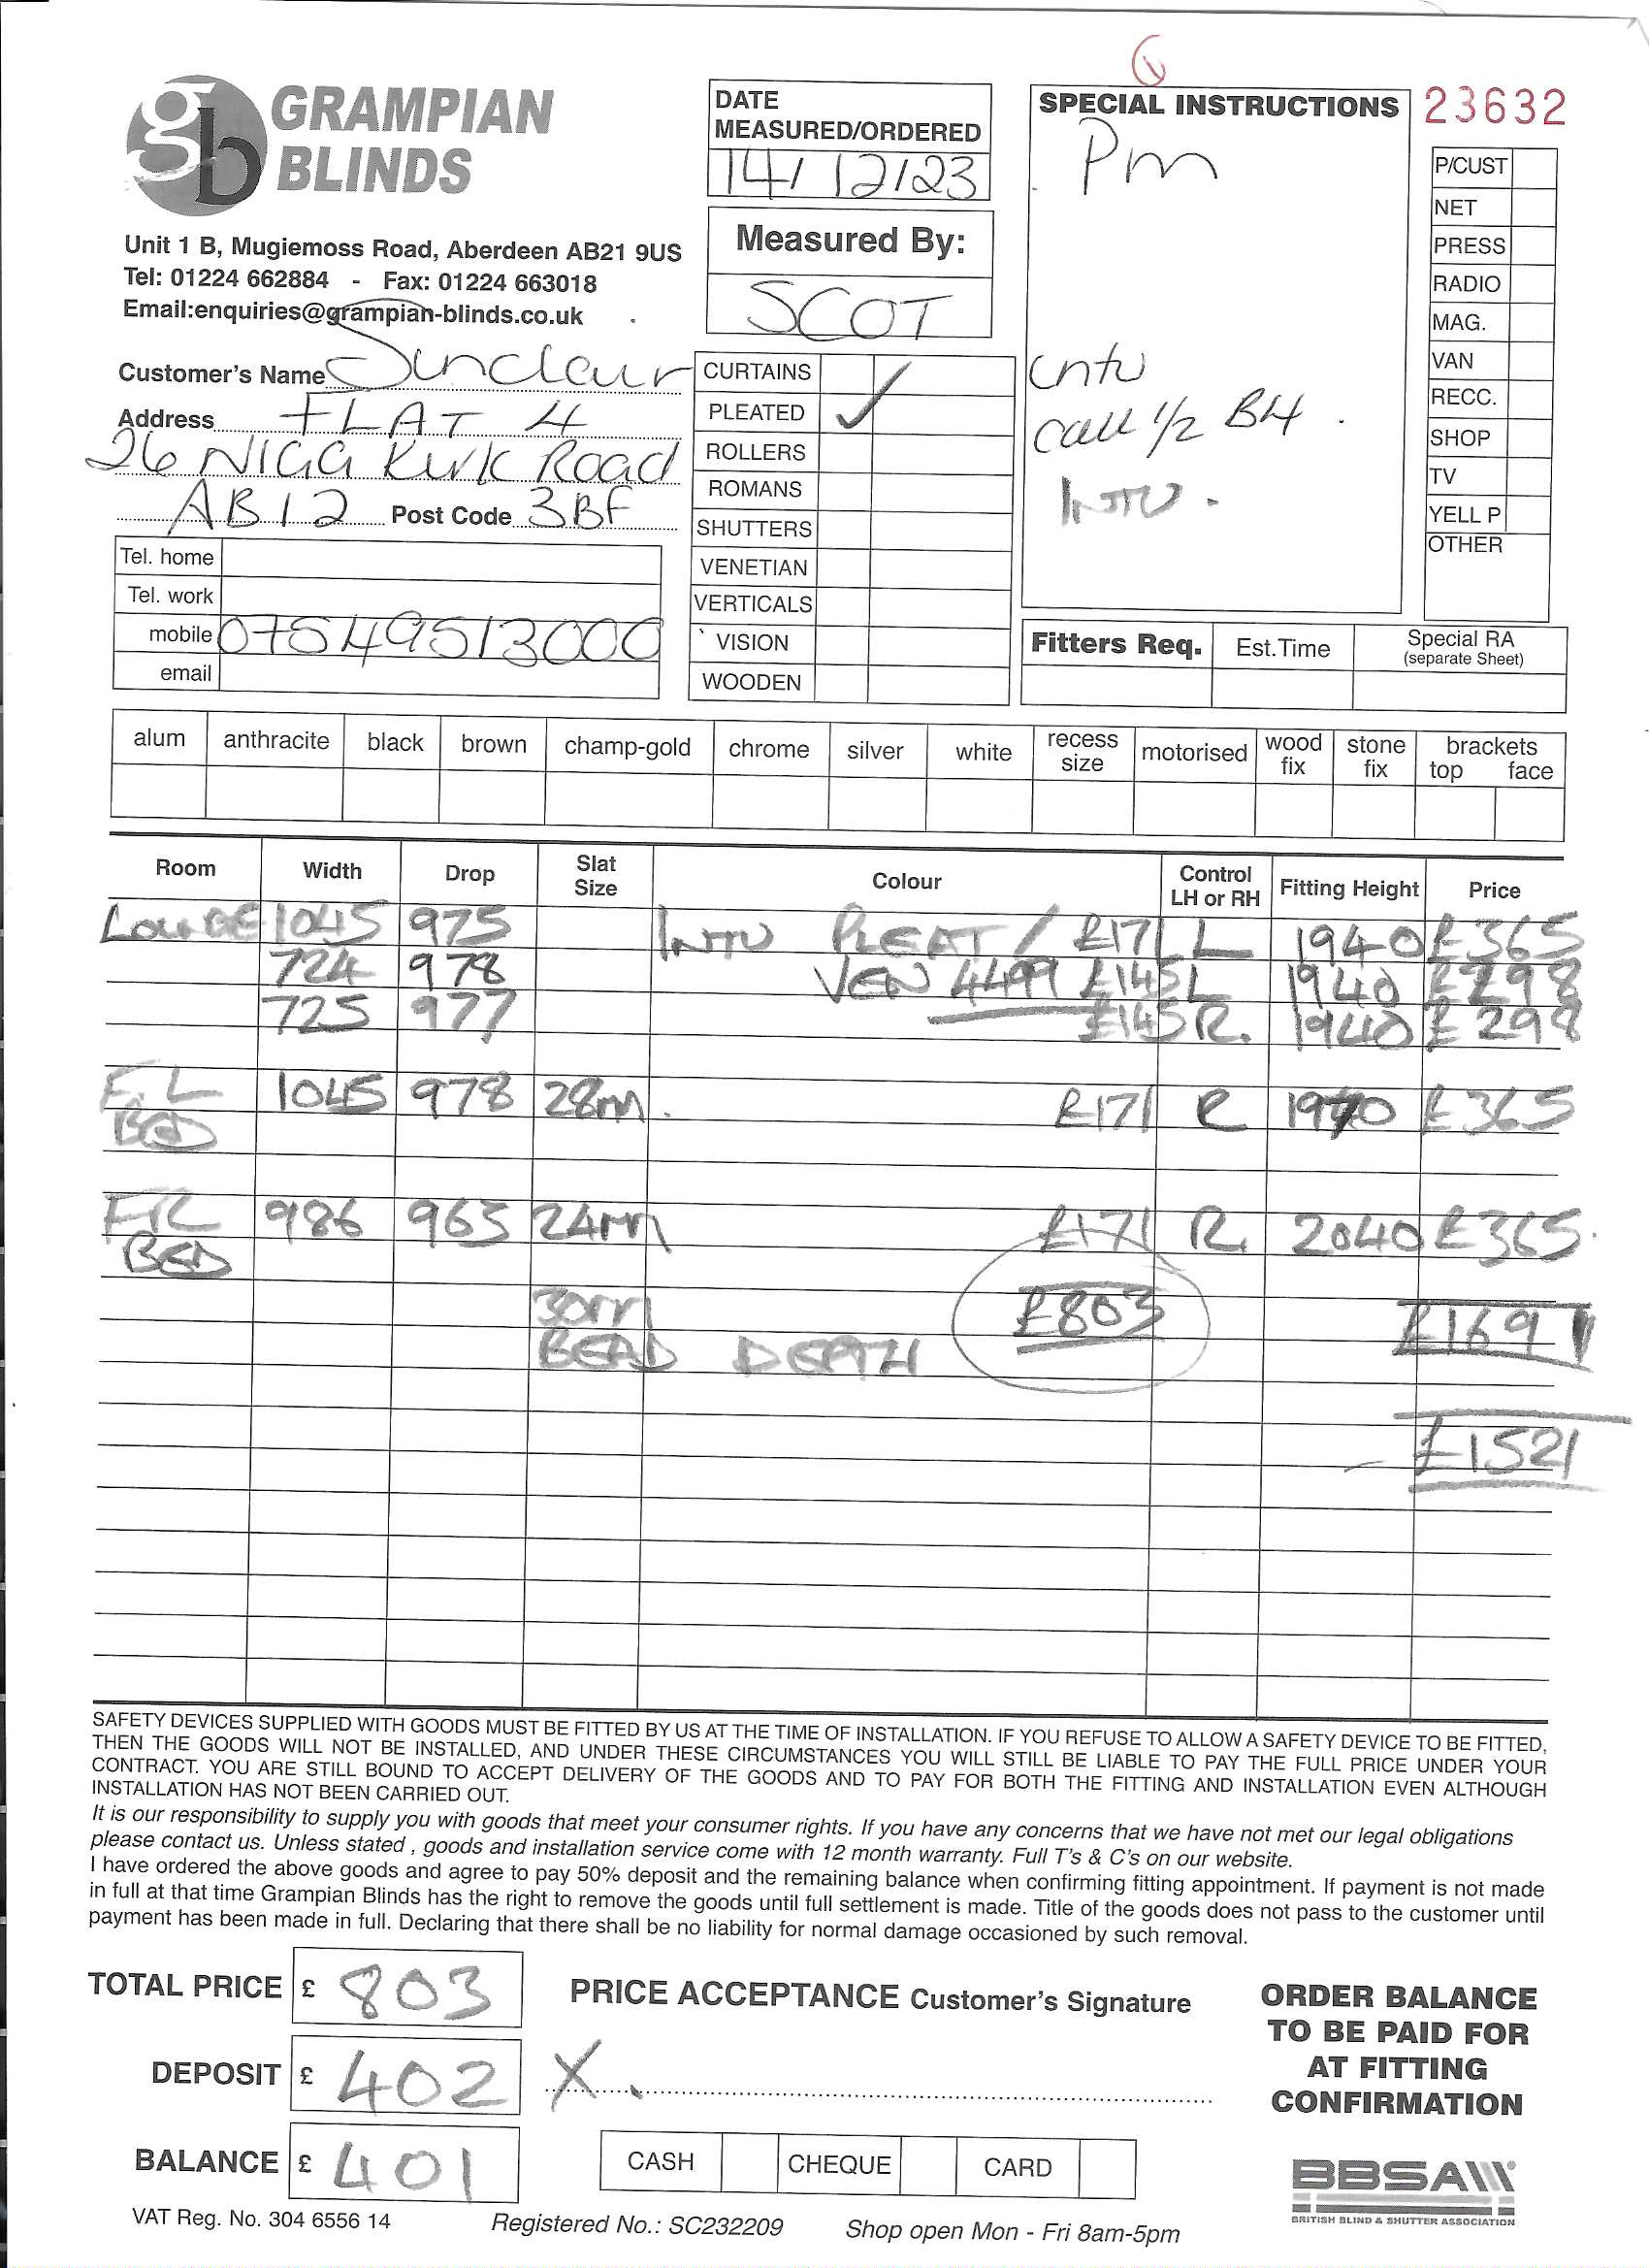 GRAMPIAN
BLINDS
Unit 1 B, Mugiemoss Road, Aberdeen AB21 9US
Tel: 01224 662884 - Fax: 01224 663018
Email:enquiries@grampian-blinds.co.uk
DATE
MEASURED/ORDERED
14/12/23
Measured By:
SCOT
1
SPECIAL INSTRUCTIONS
23632
Pm
Intu
Call 1/2 B4.
INTU.
P/CUST
NET
PRESS
RADIO
MAG.
VAN
RECC.
SHOP
TV
YELL P
OTHER
Customer's Name Sinclair
Address FLAT 4
26 NIGG Kirk Road
AB12 Post Code 3BF
Tel. home
Tel. work
mobile 07549513000
email
CURTAINS
PLEATED ✓
ROLLERS
ROMANS
SHUTTERS
VENETIAN
VERTICALS
VISION
WOODEN
Fitters Req. Est.Time Special RA
(separate Sheet)
alum anthracite black brown champ-gold chrome silver white recess size motorised wood fix stone fix brackets top face
Room Width Drop Slat Size Colour Control LH or RH Fitting Height Price
LOUNGE 1045 975 INTU PLEAT / £171 L 1940 £365
724 978 VEN 4499 £145 L 1940 £298
725 977 £145 R. 1940 £298
F.L 1045 978 28m. £171 R 1940 £365
BED
F.R 986 963 24m £171 R. 2040 £365.
BED
30m £803 £1691
BEAD DEPTH
£1521
SAFETY DEVICES SUPPLIED WITH GOODS MUST BE FITTED BY US AT THE TIME OF INSTALLATION. IF YOU REFUSE TO ALLOW A SAFETY DEVICE TO BE FITTED,
THEN THE GOODS WILL NOT BE INSTALLED, AND UNDER THESE CIRCUMSTANCES YOU WILL STILL BE LIABLE TO PAY THE FULL PRICE UNDER YOUR
CONTRACT. YOU ARE STILL BOUND TO ACCEPT DELIVERY OF THE GOODS AND TO PAY FOR BOTH THE FITTING AND INSTALLATION EVEN ALTHOUGH
INSTALLATION HAS NOT BEEN CARRIED OUT.
It is our responsibility to supply you with goods that meet your consumer rights. If you have any concerns that we have not met our legal obligations
please contact us. Unless stated , goods and installation service come with 12 month warranty. Full T's & C's on our website.
I have ordered the above goods and agree to pay 50% deposit and the remaining balance when confirming fitting appointment. If payment is not made
in full at that time Grampian Blinds has the right to remove the goods until full settlement is made. Title of the goods does not pass to the customer until
payment has been made in full. Declaring that there shall be no liability for normal damage occasioned by such removal.
TOTAL PRICE £ 803
PRICE ACCEPTANCE Customer's Signature
DEPOSIT £ 402
X.
BALANCE £ 401
CASH CHEQUE CARD
ORDER BALANCE
TO BE PAID FOR
AT FITTING
CONFIRMATION
BBSA
BRITISH BLIND & SHUTTER ASSOCIATION
VAT Reg. No. 304 6556 14 Registered No.: SC232209 Shop open Mon - Fri 8am-5pm